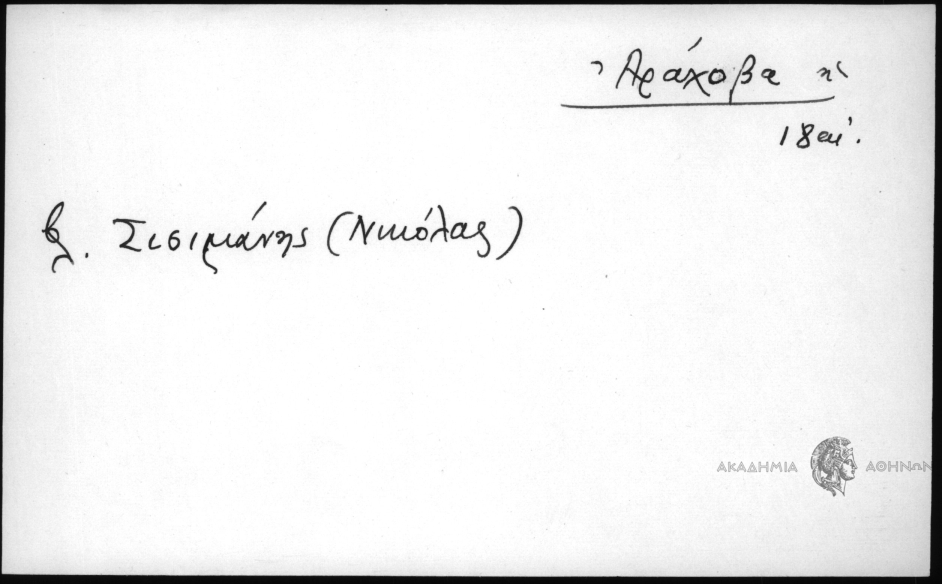 Ἀράχοβα ἡ
18 αἰ.
βλ. Σισιμάνης (Νικόλας)
ΑΚΑΔΗΜΙΑ ΑΘΗΝΩΝ